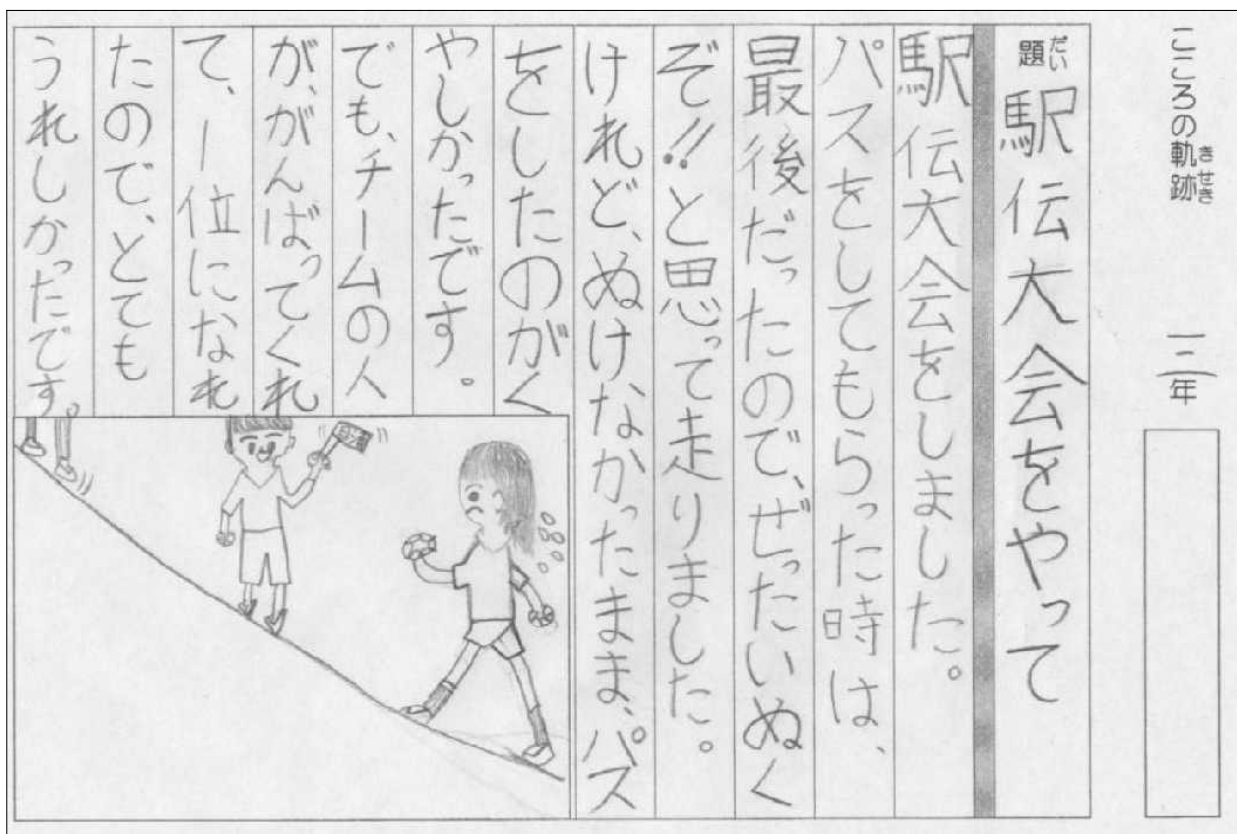 こころの軌跡
きせき
三年
題
だい
駅伝大会をやって
駅伝大会をしました。
パスをしてもらった時は、
最後だったので、ぜったいぬく
ぞ!!と思って走りました。
けれど、ぬけなかったまま、パス
をしたのがく
やしかったです。
でも、チームの人
が、がんばってくれ
て、一位になれ
たので、とても
うれしかったです。